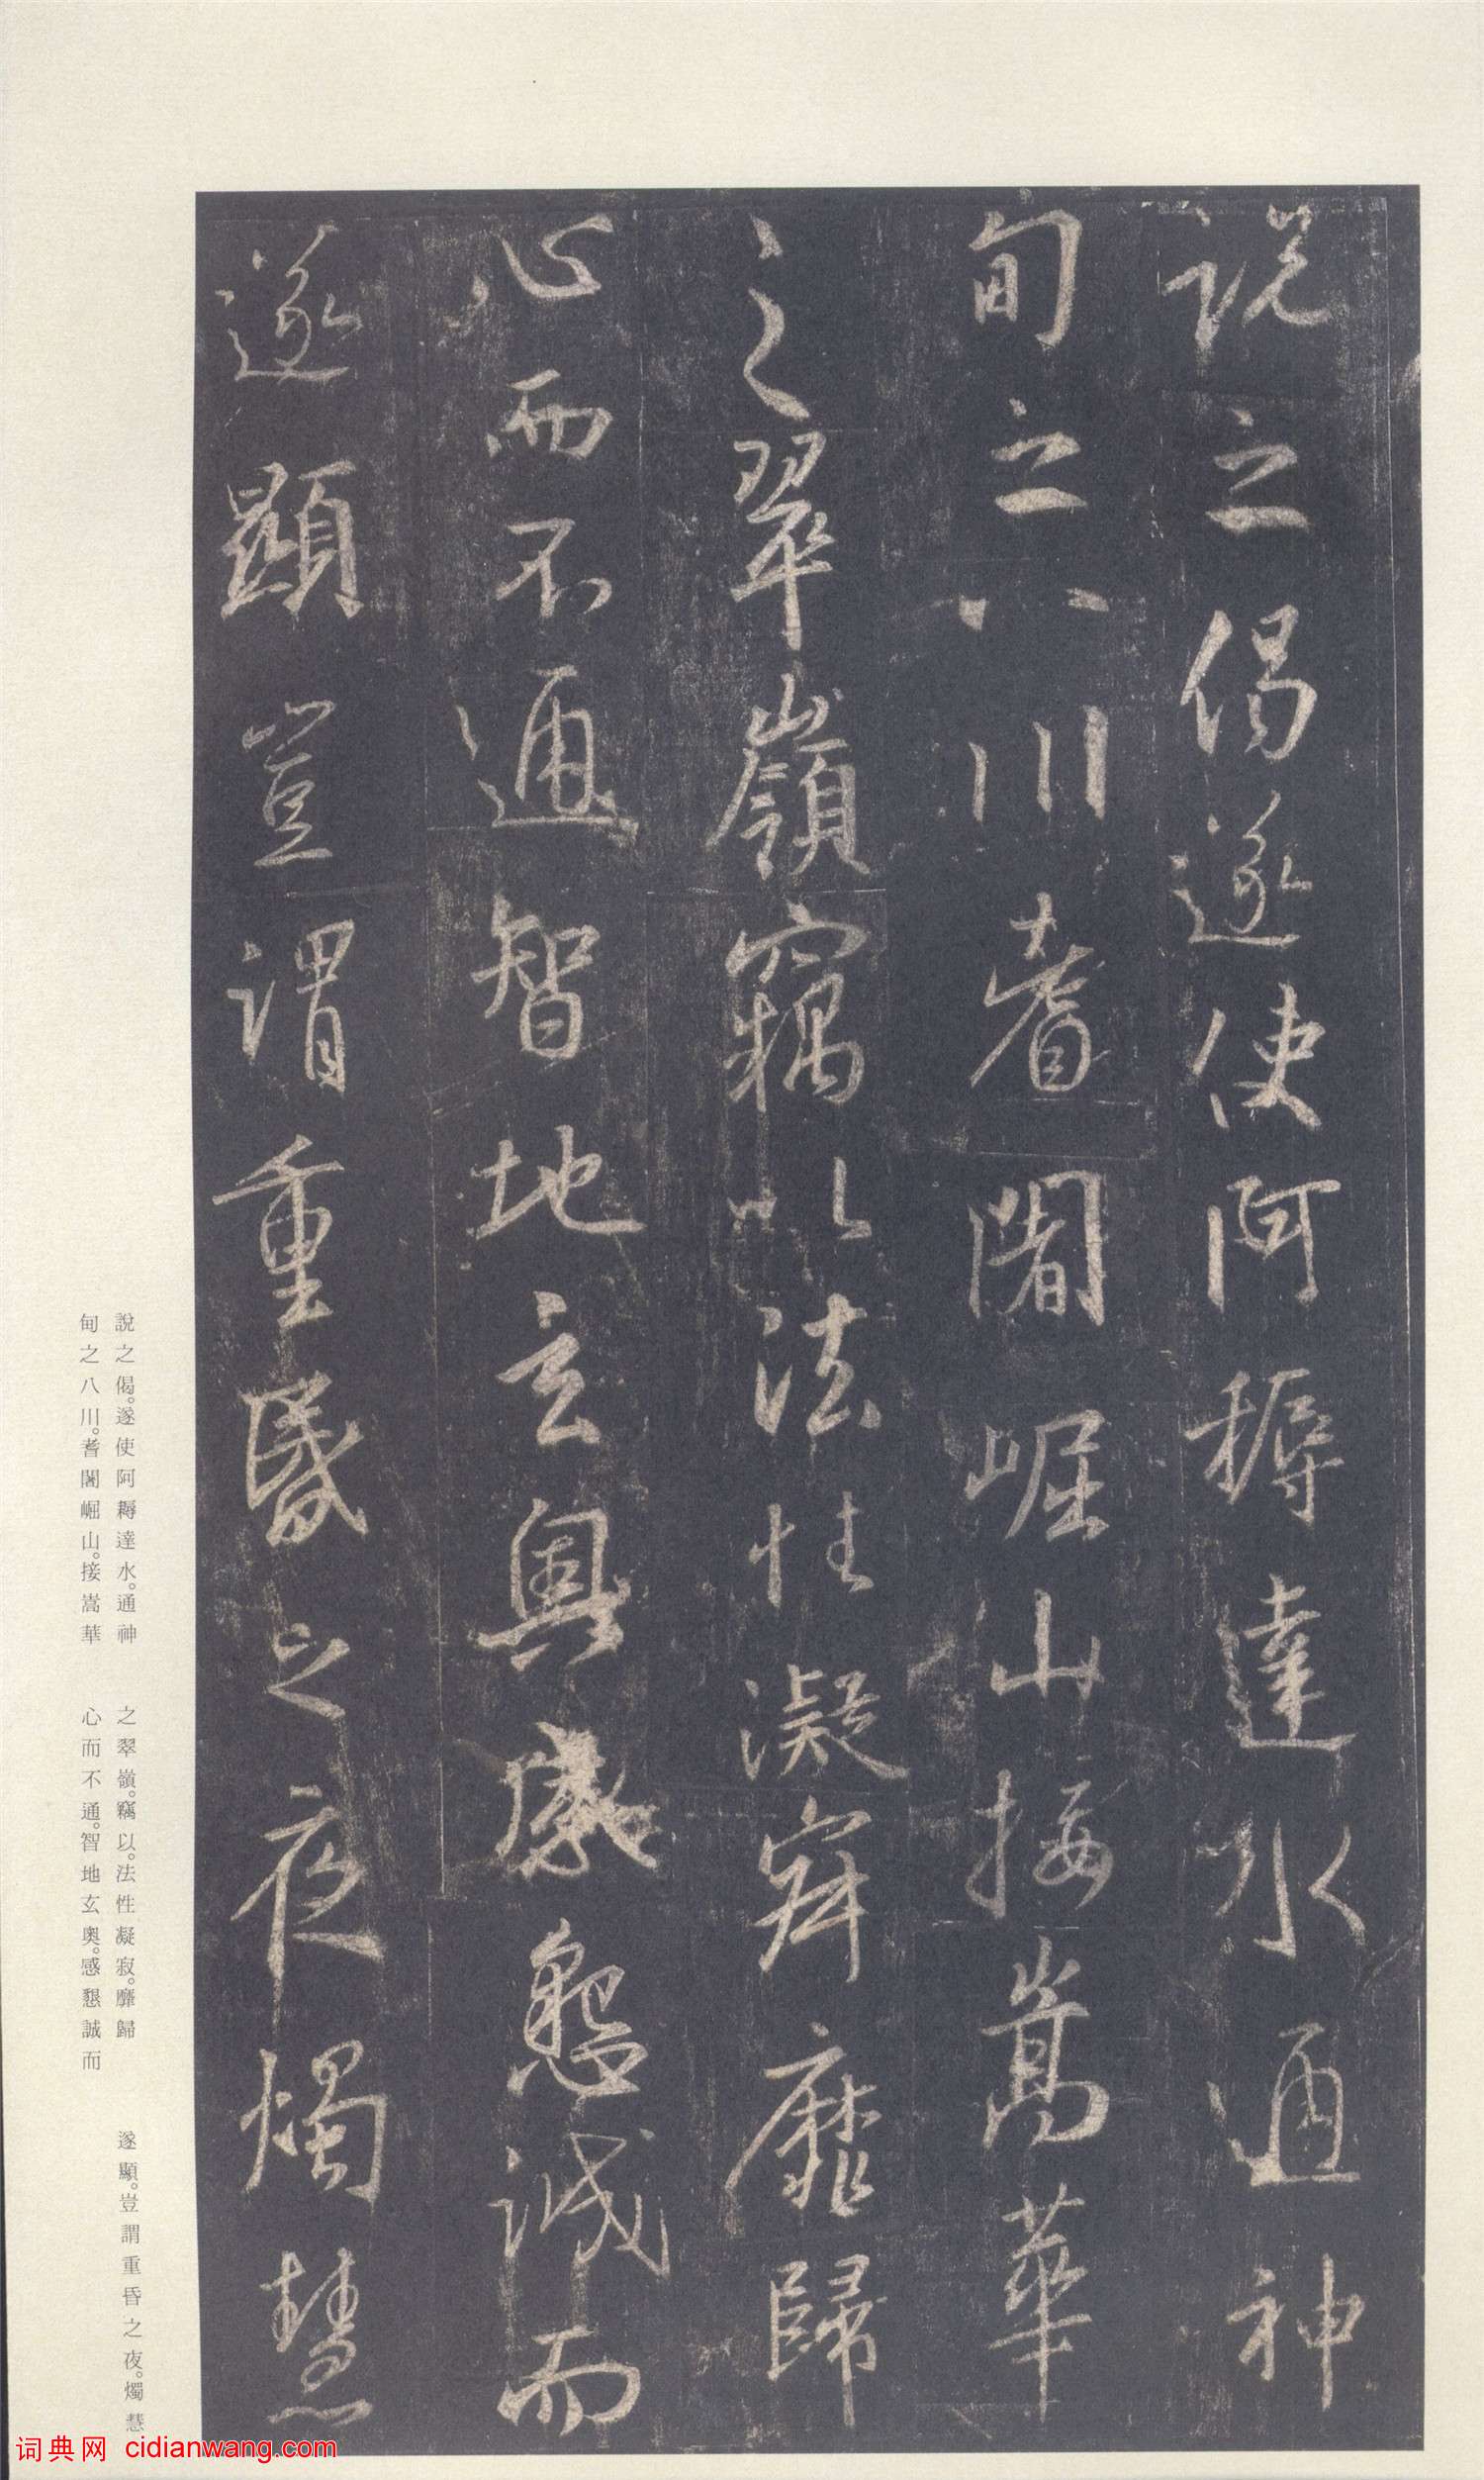 説之偈遂使阿耨達水通神
甸之八川耆闍崛山接嵩華
之翠嶺竊以法性凝寂靡歸
心而不通智地玄奧感懇誠而
遂顯豈謂重昏之夜燭慧
説之偈。遂使阿耨達水。通神
甸之八川。耆闍崛山。接嵩華
之翠嶺。竊以。法性凝寂。靡歸
心而不通。智地玄奧。感懇誠而
遂顯。豈謂重昏之夜。燭慧
词典网 cidianwang.com